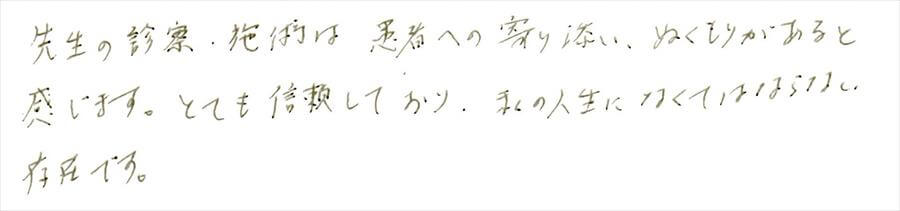 先生の診察・施術は 患者への寄り添い、ぬくもりがあると
感じます。とても信頼しており、私の人生になくてはならない
存在です。